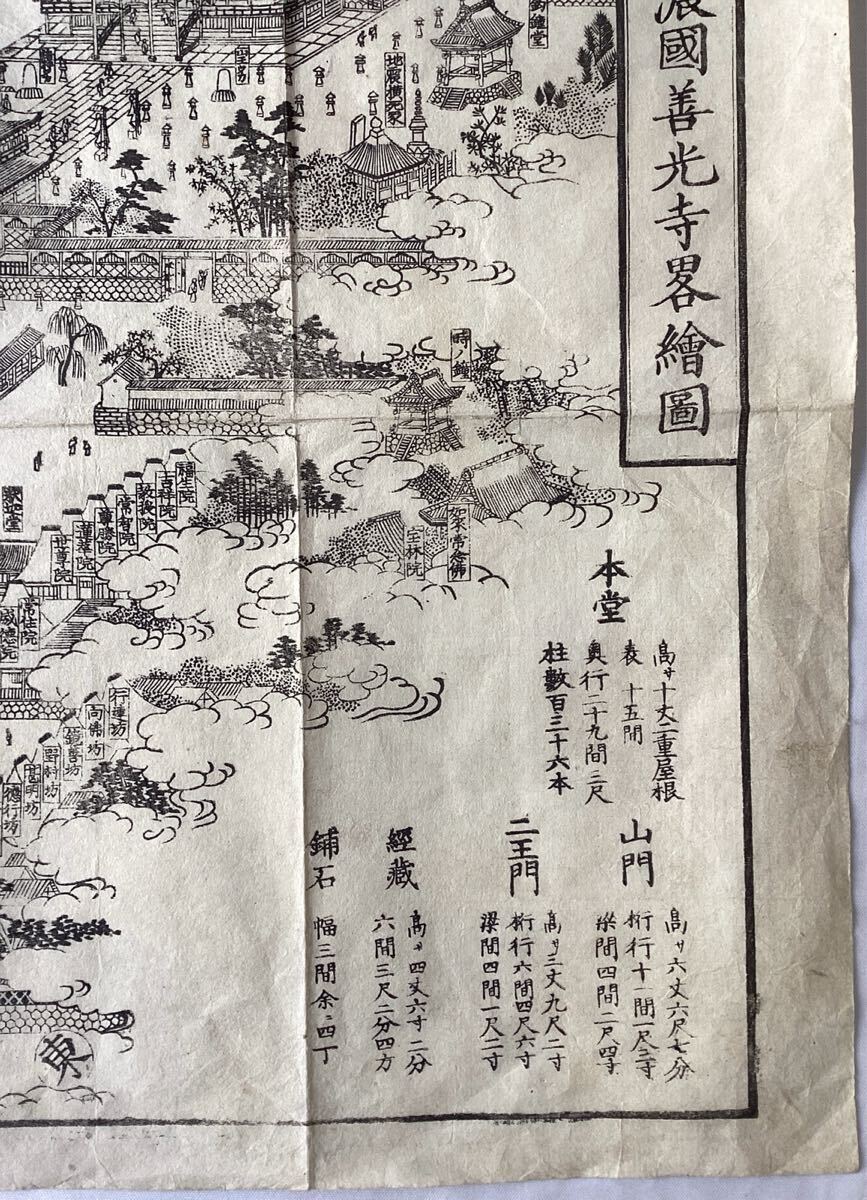 國善光寺畧繪圖
鐘堂
地震横死塚
時ノ鐘
如來常念佛
玉林院
福生院
吉祥院
教授院
常智院
尊勝院
蓮華院
世尊院
釈迦堂
常住院
威德院
行蓮坊
向佛坊
鏡善坊
野村坊
德行坊
東
本堂
高サ十丈二重屋根
表十五間
奥行二十九間二尺
柱數百三十六本
山門
高サ六丈六尺七分
桁行十一間一尺三寸
梁間四間二尺四寸
二王門
高サ三丈九尺二寸
桁行六間四尺六寸
梁間四間一尺二寸
經藏
高サ四丈六寸二分
六間三尺二分四方
鋪石
幅三間余
四丁